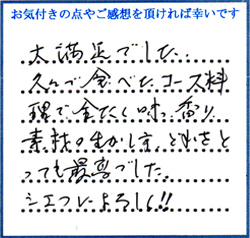 お気付きの点やご感想を頂ければ幸いです
大満足でした。
久々で食べたコース料
理で全たく味、香り
素材の生かし方 どれをと
っても最高でした
シェフによろしく!!